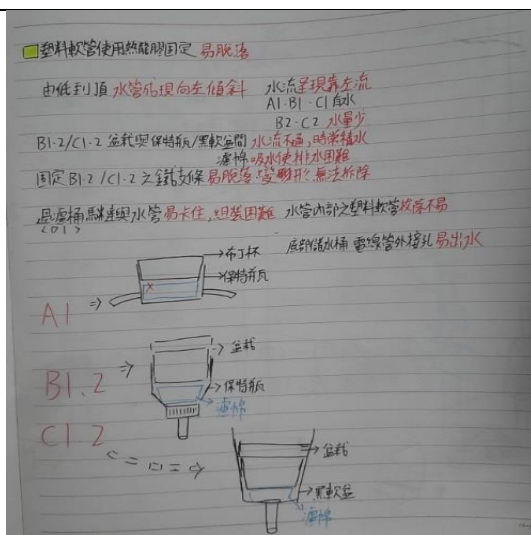 塑料軟管使用熱熔膠固定 易脫落
由低到頂 水管成現向左傾斜 水流呈現靠左流
A1.B1.C1 有水
B2.C2 水量少
B1.2/C1.2 盆栽與保特瓶/黑軟盆間 水流不通,時常積水
濾棉 吸水使排水困難
固定 B1.2/C1.2 之鐵支條 易脫落、變形、無法拆除
過濾桶 馬達與水管 易卡住,組裝困難 水管內部之塑料軟管 拔除不易
(D1)
底部儲水桶 電線管外接孔 易出水
A1 ⇒
布丁杯
保特瓶
X
B1.2 ⇒
盆栽
保特瓶
濾棉
C1.2
盆栽
黑軟盆
濾棉